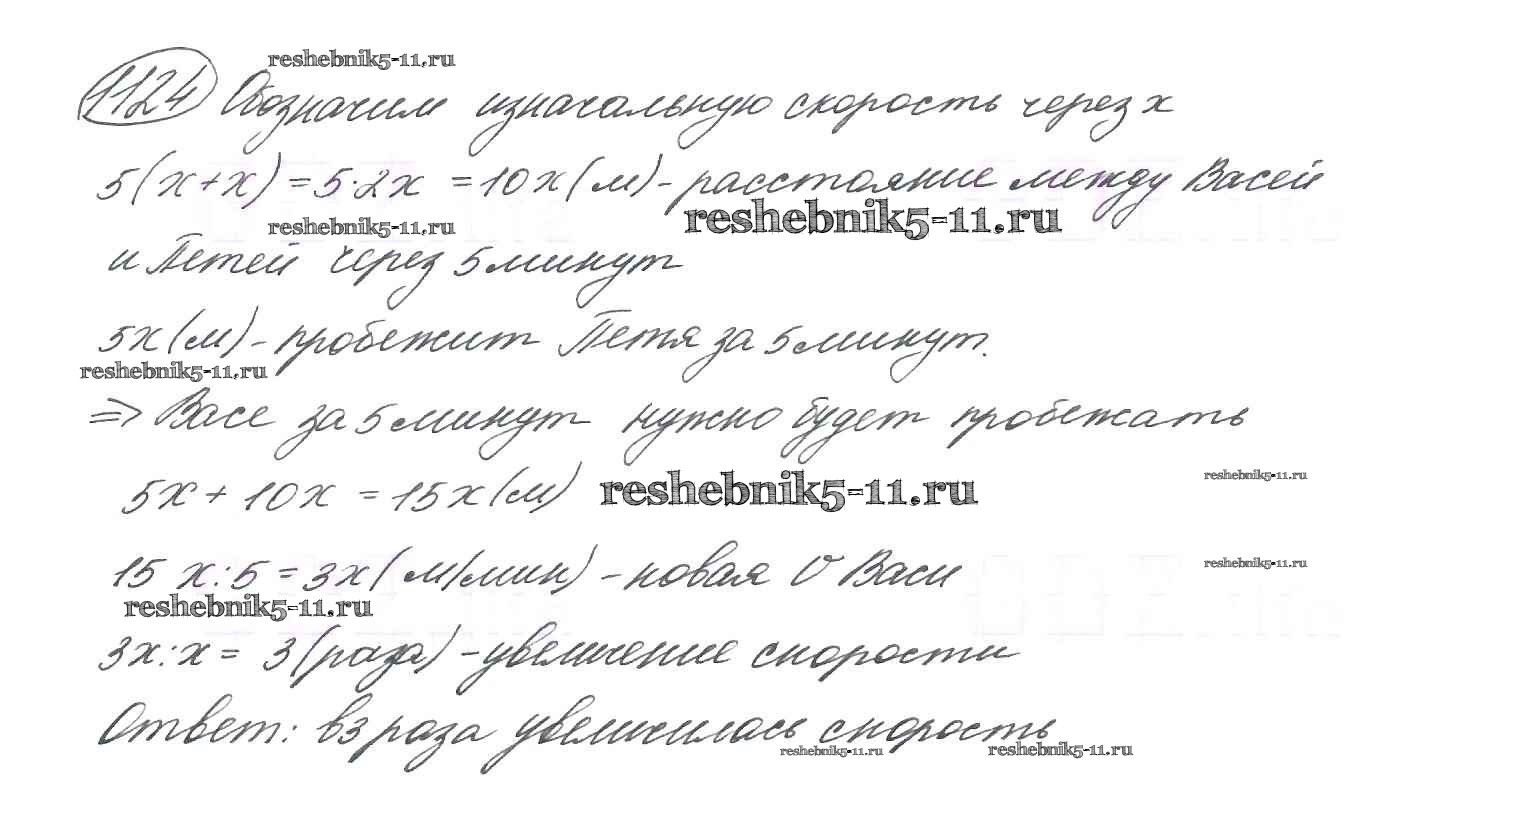 reshebnik5-11.ru
1124 Обозначим изначальную скорость через x
5(x+x)=5·2x =10x(м)- расстояние между Васей
reshebnik5-11.ru
reshebnik5-11.ru
и Петей через 5 минут
5x(м)- пробежит Петя за 5 минут.
reshebnik5-11.ru
=> Васе за 5 минут нужно будет пробежать
5x+10x =15x(м)
reshebnik5-11.ru
reshebnik5-11.ru
15 x:5=3x(м/мин) - новая V Васи
reshebnik5-11.ru
reshebnik5-11.ru
3x:x= 3(раза) - увеличение скорости
Ответ: в 3 раза увеличилась скорость
reshebnik5-11.ru
reshebnik5-11.ru